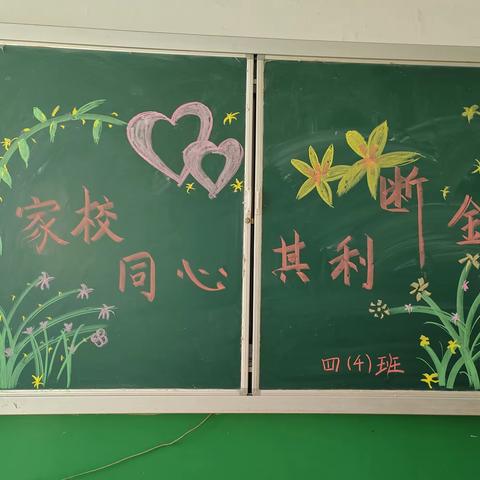 家校同心 其利断金
四(4)班